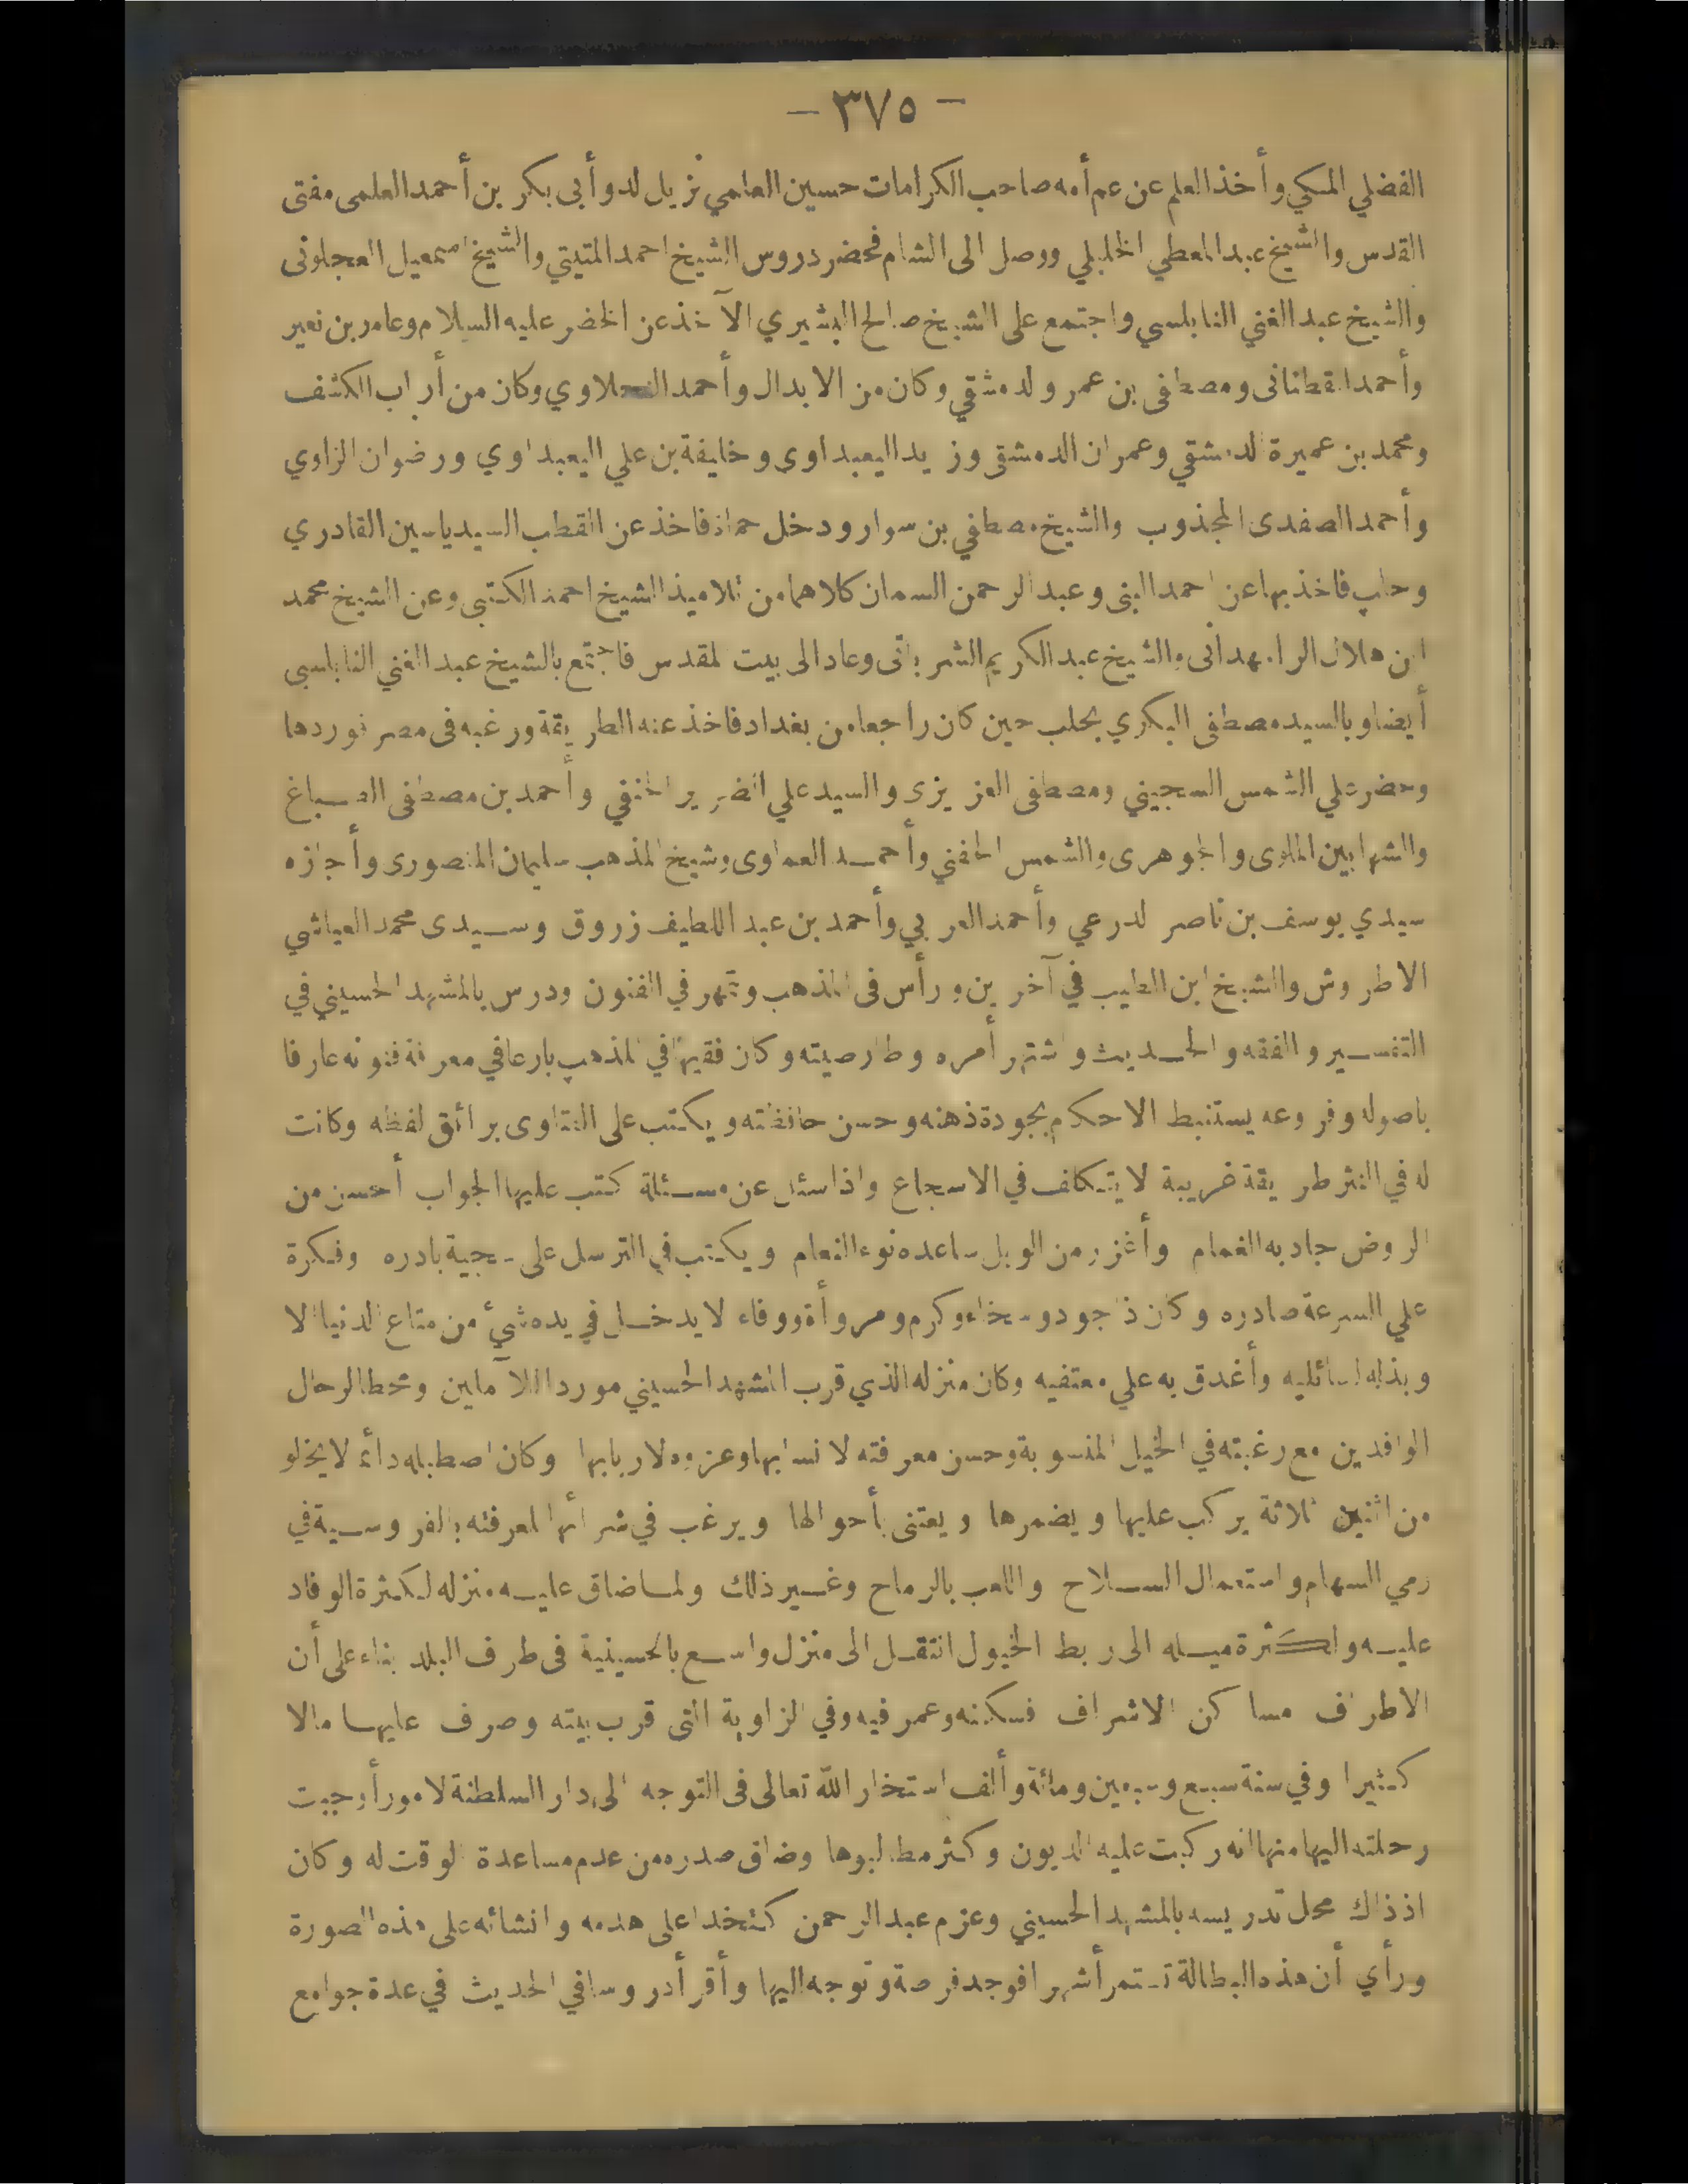 - ٣٧٥ -
الفضلي المكي وأخذ العلم عن عم أمه صاحب الكرامات حسين العلمي نزيل لد وأبى بكر بن أحمد العلمى مفتى
القدس والشيخ عبد المعطي الخليلي ووصل الى الشام فحضر دروس الشيخ احمد المنيني والشيخ اسمعيل العجلونى
والشيخ عبد الغني النابلسي واجتمع على الشيخ صالح البشيري الآخذ عن الخضر عليه السلام وعامر بن نعير
وأحمد القطنانى ومصطفى بن عمر والدمشقي وكان من الابدال وأحمد النحلاوي وكان من أرباب الكشف
ومحمد بن عميرة الدمشقي وعمران الدمشقى وزيد اليعبداوى وخليفة بن علي اليعبداوي ورضوان الزاوي
وأحمد الصفدى المجذوب والشيخ مصطفي بن سوار ودخل حماة فاخذ عن القطب السيد ياسين القادري
وحلب فاخذ بها عن احمد البنى وعبد الرحمن السمان كلاهما من تلاميذ الشيخ احمد الكتبى وعن الشيخ محمد
ابن هلال الرامهدانى والشيخ عبد الكريم الشرباتى وعاد الى بيت المقدس فاجتمع بالشيخ عبد الغني النابلسى
أيضا وبالسيد مصطفى البكري بحلب حين كان راجعا من بغداد فاخذ عنه الطريقة ورغبه فى مصر فوردها
وحضر علي الشمس السجيني ومصطفى العزيزى والسيد علي الضرير الحنفي وأحمد بن مصطفى الصباغ
والشهابين الملوى والجوهرى والشمس الحفني وأحمد العماوى وشيخ المذهب سليمان المنصورى وأجازه
سيدي يوسف بن ناصر الدرعي وأحمد العربي وأحمد بن عبد اللطيف زروق وسيدى محمد العياشي
الاطروش والشيخ ابن الطيب في آخرين ورأس فى المذهب وتمهر في الفنون ودرس بالمشهد الحسيني في
التفسير والفقه والحديث واشتهر أمره وطار صيته وكان فقيها في المذهب بارعا في معرفة فنونه عارفا
باصوله وفروعه يستنبط الاحكام بجودة ذهنه وحسن حافظته ويكتب على الفتاوى برائق لفظه وكانت
له في النثر طريقة غريبة لا يتكلف في الاسجاع واذا سئل عن مسئلة كتب عليها الجواب أحسن من
الروض جاد به الغمام وأغزر من الوبل ساعده نوء النعام ويكتب في الترسل على سجية بادره وفكرة
علي السرعة صادره وكان ذا جود وسخاء وكرم ومروأة ووفاء لا يدخل في يده شئ من متاع الدنيا الا
وبذله لسائليه وأغدق به علي معتفيه وكان منزله الذي قرب المشهد الحسيني موردا للآملين ومحط الرحال
الوافدين مع رغبته في الخيل المنسوبة وحسن معرفته لانسابها وعزوه لاربابها وكان اصطبله دائما لا يخلو
من اثنين ثلاثة يركب عليها ويضمرها ويعتنى بأحوالها ويرغب في شرائها لمعرفته بالفروسية في
رمي السهام واستعمال السلاح واللعب بالرماح وغير ذلك ولما ضاق عليه منزله لكثرة الوفاد
عليه ولكثرة ميله الى ربط الخيول انتقل الى منزل واسع بالحسينية فى طرف البلد بناء على أن
الاطراف مساكن الاشراف فسكنه وعمر فيه وفي الزاوية التى قرب بيته وصرف عليها مالا
كثيرا وفي سنة سبع وسبعين ومائة وألف استخار الله تعالى فى التوجه الى دار السلطنة لامور أوجبت
رحلته اليها منها انه ركبت عليه الديون وكثر مطالبوها وضاق صدره من عدم مساعدة الوقت له وكان
اذ ذاك محل تدريسه بالمشهد الحسيني وعزم عبد الرحمن كتخدا على هدمه وانشائه على هذه الصورة
ورأي أن هذه البطالة تستمر أشهرا فوجد فرصة وتوجه اليها وأقرأ دروسا في الحديث في عدة جوامع